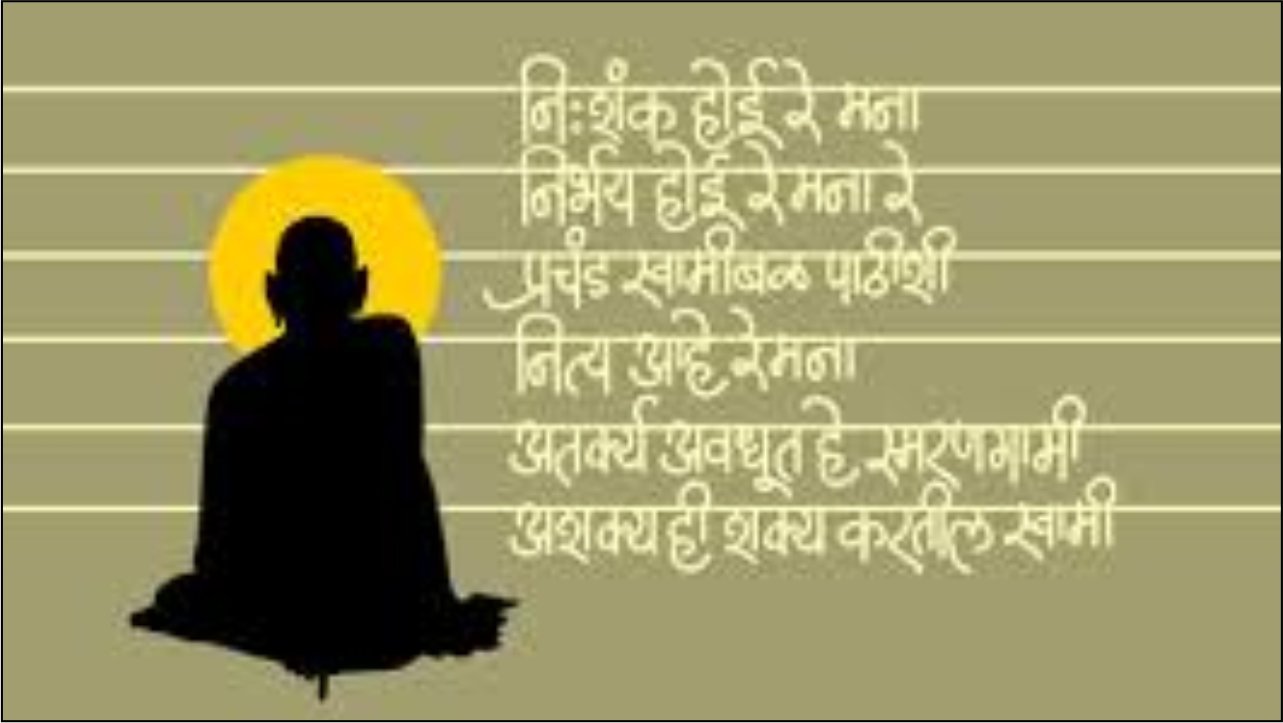 निःशंक होई रे मना
निर्भय होई रे मना रे
प्रचंड स्वामीबळ पाठीशी
नित्य आहे रे मना
अतर्क्य अवधूत हे स्मरणगामी
अशक्य ही शक्य करतील स्वामी